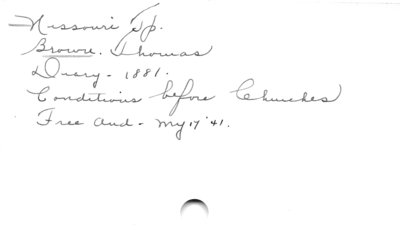 Nissouri Tp.
Browne. Thomas
Diary - 1881.
Conditions before Churches
Free and - My 17 '41.